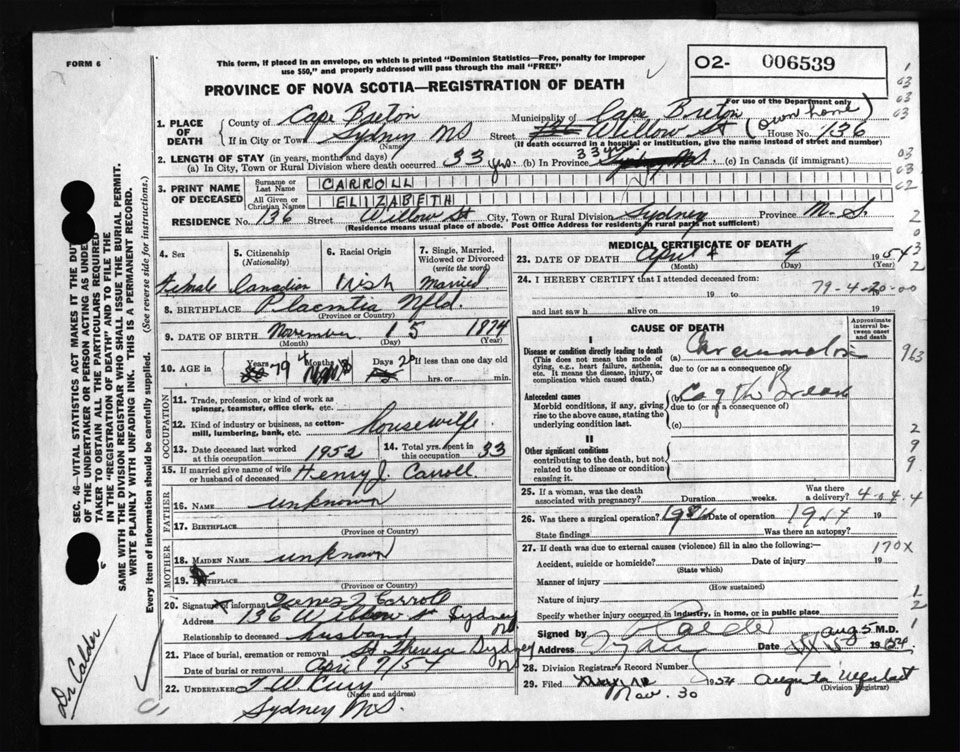 FORM 6
This form, if placed in an envelope, on which is printed "Dominion Statistics—Free, penalty for improper
use $50," and properly addressed will pass through the mail "FREE"
O2- 006539
PROVINCE OF NOVA SCOTIA—REGISTRATION OF DEATH
For use of the Department only
1. PLACE OF DEATH
County of Cape Breton Municipality of Cape Breton
If in City or Town Sydney NS Street Willow St (own home) House No. 136
(Name) (If death occurred in a hospital or institution, give the name instead of street and number)
2. LENGTH OF STAY (in years, months and days)
(a) In City, Town or Rural Division where death occurred 33 yrs. (b) In Province 33 yrs (c) In Canada (if immigrant)
3. PRINT NAME OF DECEASED
Surname or Last Name CARROLL
All Given or Christian Names ELIZABETH
RESIDENCE No. 136 Street Willow St City, Town or Rural Division Sydney Province N.S.
(Residence means usual place of abode. Post Office Address for residents in rural parts not sufficient)
4. Sex
Female
5. Citizenship
(Nationality)
Canadian
6. Racial Origin
Irish
7. Single, Married, Widowed or Divorced
(write the word)
Married
8. BIRTHPLACE Placentia Nfld.
(Province or Country)
9. DATE OF BIRTH November 15 1874
(Month) (Day) (Year)
10. AGE in Years 79 Months 4 Days If less than one day old
hrs. or min.
OCCUPATION
11. Trade, profession, or kind of work as
spinner, teamster, office clerk, etc.
12. Kind of industry or business, as cotton-
mill, lumbering, bank, etc. housewife
13. Date deceased last worked
at this occupation 1952
14. Total yrs. spent in
this occupation 33
15. If married give name of wife
or husband of deceased Henry J. Carroll
FATHER
16. Name unknown
17. Birthplace
(Province or Country)
MOTHER
18. MAIDEN NAME unknown
19. Birthplace
(Province or Country)
20. Signature of informant Carroll
Address 136 Willow St Sydney
Relationship to deceased husband
21. Place of burial, cremation or removal St Theresa Sydney
Date of burial or removal April 7/54
22. UNDERTAKER T W Curry
(Name and address)
Sydney N.S.
MEDICAL CERTIFICATE OF DEATH
23. DATE OF DEATH April 4 1954
(Month) (Day) (Year)
24. I HEREBY CERTIFY that I attended deceased from:
19 to 19
79-4-20-00
and last saw h alive on 19
CAUSE OF DEATH
Approximate interval between onset and death
I
Disease or condition directly leading to death (a)
(This does not mean the mode of
dying, e.g., heart failure, asthenia,
etc. It means the disease, injury, or
complication which caused death.)
due to (or as a consequence of)
Antecedent causes (b) Ca of the Breast
Morbid conditions, if any, giving
rise to the above cause, stating the
underlying condition last.
due to (or as a consequence of)
(c)
II
Other significant conditions
contributing to the death, but not
related to the disease or condition
causing it.
25. If a woman, was the death
associated with pregnancy? Duration weeks. Was there
a delivery? 4-4-4
26. Was there a surgical operation? Date of operation 19
State findings Was there an autopsy?
27. If death was due to external causes (violence) fill in also the following:— 170X
Accident, suicide or homicide? Date of injury 19
(State which)
Manner of injury
(How sustained)
Nature of injury
Specify whether injury occurred in industry, in home, or in public place
Signed by Calder M.D.
Address Sydney Date Aug 5 1954
28. Division Registrar's Record Number
29. Filed Nov. 30 1954 Augusta
(Division Registrar)
SEC. 46—VITAL STATISTICS ACT MAKES IT THE DUTY
OF THE UNDERTAKER OR PERSON ACTING AS UNDER-
TAKER TO OBTAIN ALL THE PARTICULARS REQUIRED
IN THE "REGISTRATION OF DEATH" AND TO FILE THE
SAME WITH THE DIVISION REGISTRAR WHO SHALL ISSUE THE BURIAL PERMIT.
WRITE PLAINLY WITH UNFADING INK. THIS IS A PERMANENT RECORD.
Every item of information should be carefully supplied. (See reverse side for instructions.)
Dr Calder